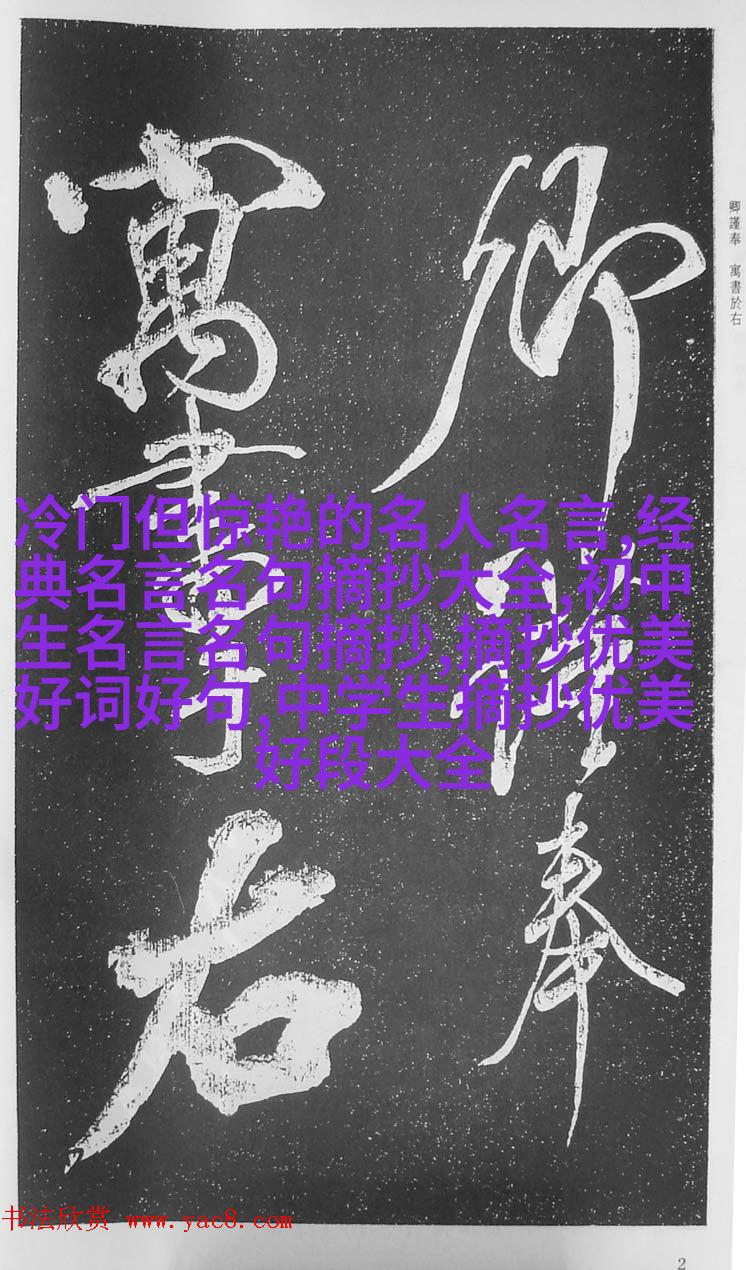 卿謹奉
寓書於右
卿謹奉 寓書於右
冷门但惊艳的名人名言,经
典名言名句摘抄大全,初中
生名言名句摘抄,摘抄优美
好词好句,中学生摘抄优美
好段大全
书法欣赏 www.yac8.com
2